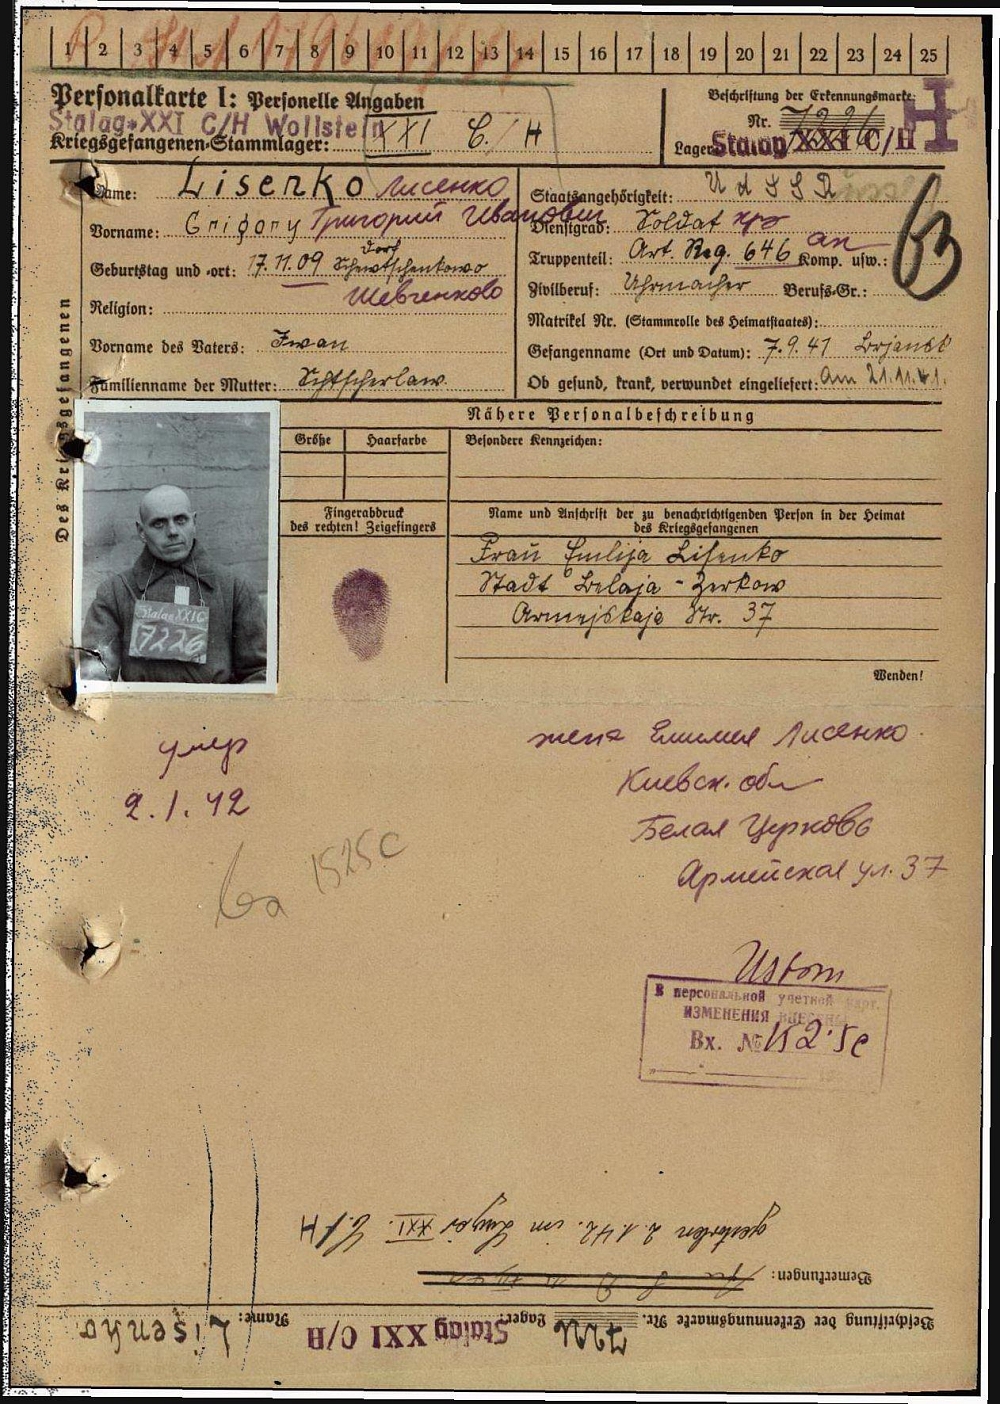 1 2 3 4 5 6 7 8 9 10 11 12 13 14 15 16 17 18 19 20 21 22 23 24 25
Personalkarte I: Personelle Angaben
Stalag XXI C/H Wollstein
Kriegsgefangenen-Stammlager: XXI C/H
Beschriftung der Erkennungsmarke:
Nr. 7226
Lager: Stalag XXI C/H
H
Des Kriegsgefangenen
Name: Lisenko Лисенко
Vorname: Grigory Григорий Иванович
Geburtstag und -ort: 17.11.09 Dorf Schewtschenkowo
Шевченково
Religion:
Vorname des Vaters: Iwan
Familienname der Mutter: Schtscherlaw
Staatsangehörigkeit: UdSSR
Dienstgrad: Soldat
Truppenteil: Art. Reg. 646 Komp. usw.:
Zivilberuf: Uhrmacher Berufs-Gr.:
Matrikel Nr. (Stammrolle des Heimatstaates):
Gefangenname (Ort und Datum): 7.9.41 Brjansk
Ob gesund, krank, verwundet eingeliefert: am 21.11.41.
63
Nähere Personalbeschreibung
Größe Haarfarbe Besondere Kennzeichen:
Fingerabdruck
des rechten! Zeigefingers
Name und Anschrift der zu benachrichtigenden Person in der Heimat
des Kriegsgefangenen
Frau Emilija Lisenko
Stadt Belaja-Zerkow
Armejskaja Str. 37
Wenden!
Stalag XXI C
7226
умер
2.1.42
жена Емилия Лисенко
Киевск. обл
Белая Церковь
Армейская ул. 37
1525с
В персональной учетной карт.
ИЗМЕНЕНИЯ ВНЕСЕНЫ
Вх. № 1525с
gestorben 2.1.42. im Lager XXI. C/H
Bemerkungen:
Beschriftung der Erkennungsmarke Nr. 7226 Lager: Stalag XXI C/H Name: Lisenko